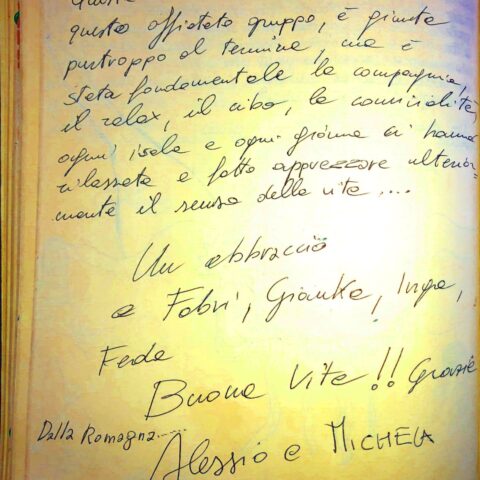 questo affiatato gruppo, è giunta
purtroppo al termine, ma è
stata fondamentale la compagnia,
il relax, il cibo, la convivialità,
ogni isola e ogni giorno ci hanno
rilassato e fatto apprezzare ulterior=
mente il senso della vita ....
Un abbraccio
a Fabri, Gianka, Inga,
Fede
Buona Vita!! Grazie
Dalla Romagna......
Alessio e MICHELA